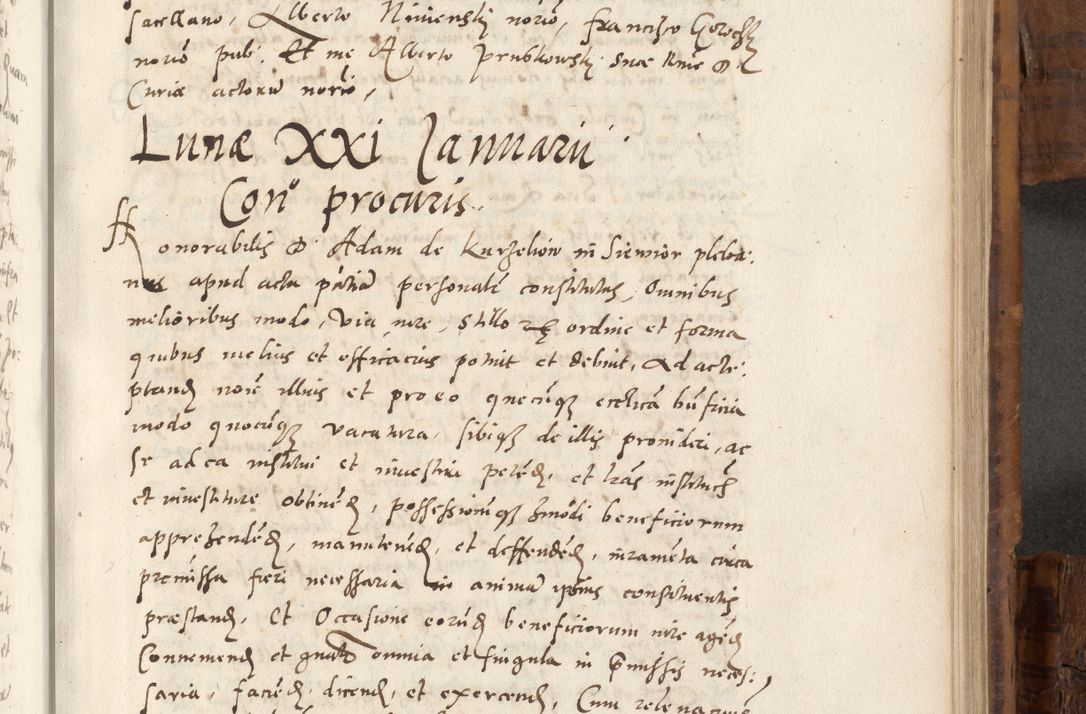 sacellano, Alberto Niniensky norio, Francisco Gorecky
norio pub. Et me Alberto Prubkowsky suae Rme D.
Curiae actorum norio,
Lunae XXI Januarii
Con° procuris
Honorabilis D. Adam de Kurzeliow in Siemior pleba:
nus apud acta pntia personalr constitutus, Omnibus
melioribus modo, via iure, stillo ordine et forma
quibus melius et efficacius potuit et debuit, Ad acce:
ptand noie illius et pro eo quecuq ecclica bnficia
modo quocuq vacatura, sibiq de illis provideri, ac
se ad ea institui et investiri petend, et lras institucis
et investiture obtinend, possessioneq hmodi beneficiorum
apprehendend, manutenend, et deffendend, iuramenta circa
premissa fieri necessaria in animam ipsius constituentis
praestand, Et Occasione eorund beneficiorum iure agend
Conveniend et omnia et singula in pmissis neces:
saria, faciend, dicend, et exercend, Cum relevacione